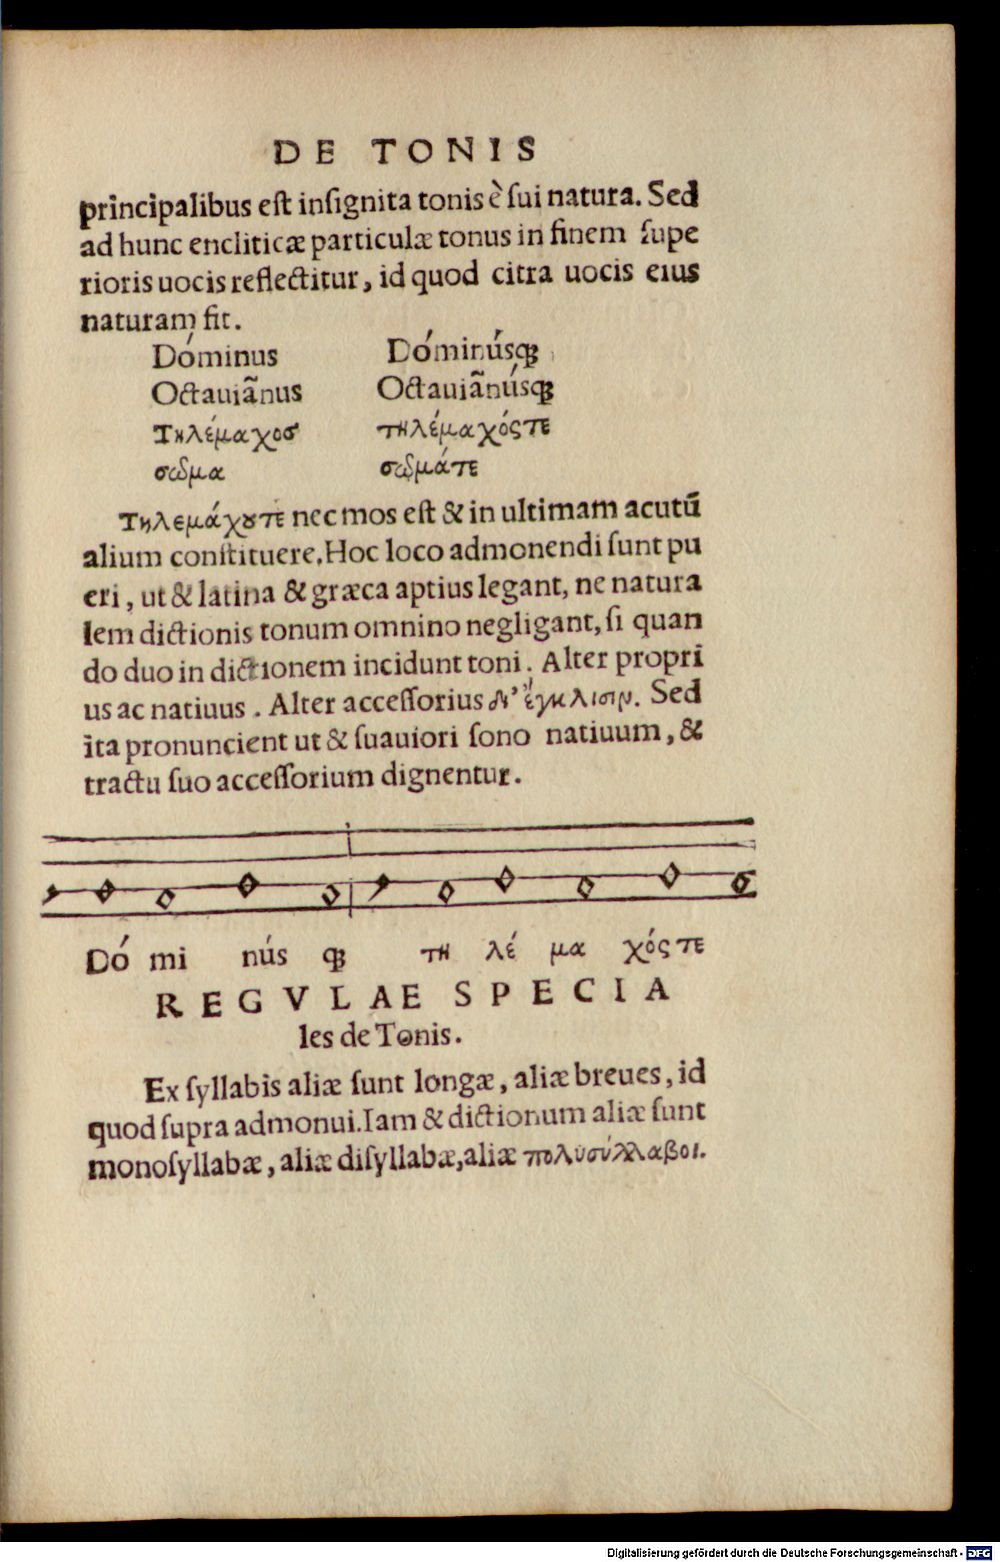 DE TONIS
principalibus eſt inſignita tonis è ſui natura. Sed
ad hunc encliticæ particulæ tonus in finem ſupe
rioris uocis reflectitur, id quod citra uocis eius
naturam fit.
Dóminus Dóminúsqꝫ
Octauiãnus Octauiãnúsqꝫ
Τηλέμαχοσ τηλέμαχόςτε
σω̃μα σω̃μάτε
Τηλεμάχουτε nec mos eſt & in ultimam acutũ
alium conſtituere. Hoc loco admonendi ſunt pu
eri, ut & latina & græca aptius legant, ne natura
lem dictionis tonum omnino negligant, ſi quan
do duo in dictionem incidunt toni. Alter propri
us ac natiuus. Alter acceſſorius δι’ ἔγκλισιν. Sed
ita pronuncient ut & ſuauiori ſono natiuum, &
tractu ſuo acceſſorium dignentur.
Dó mi nús qꝫ τη λέ μα χόςτε
REGVLAE SPECIA
les de Tonis.
Ex ſyllabis aliæ ſunt longæ, aliæ breues, id
quod ſupra admonui. Iam & dictionum aliæ ſunt
monoſyllabæ, aliæ diſyllabæ, aliæ πολυσύλλαβοι.
Digitalisierung gefördert durch die Deutsche Forschungsgemeinschaft - DFG